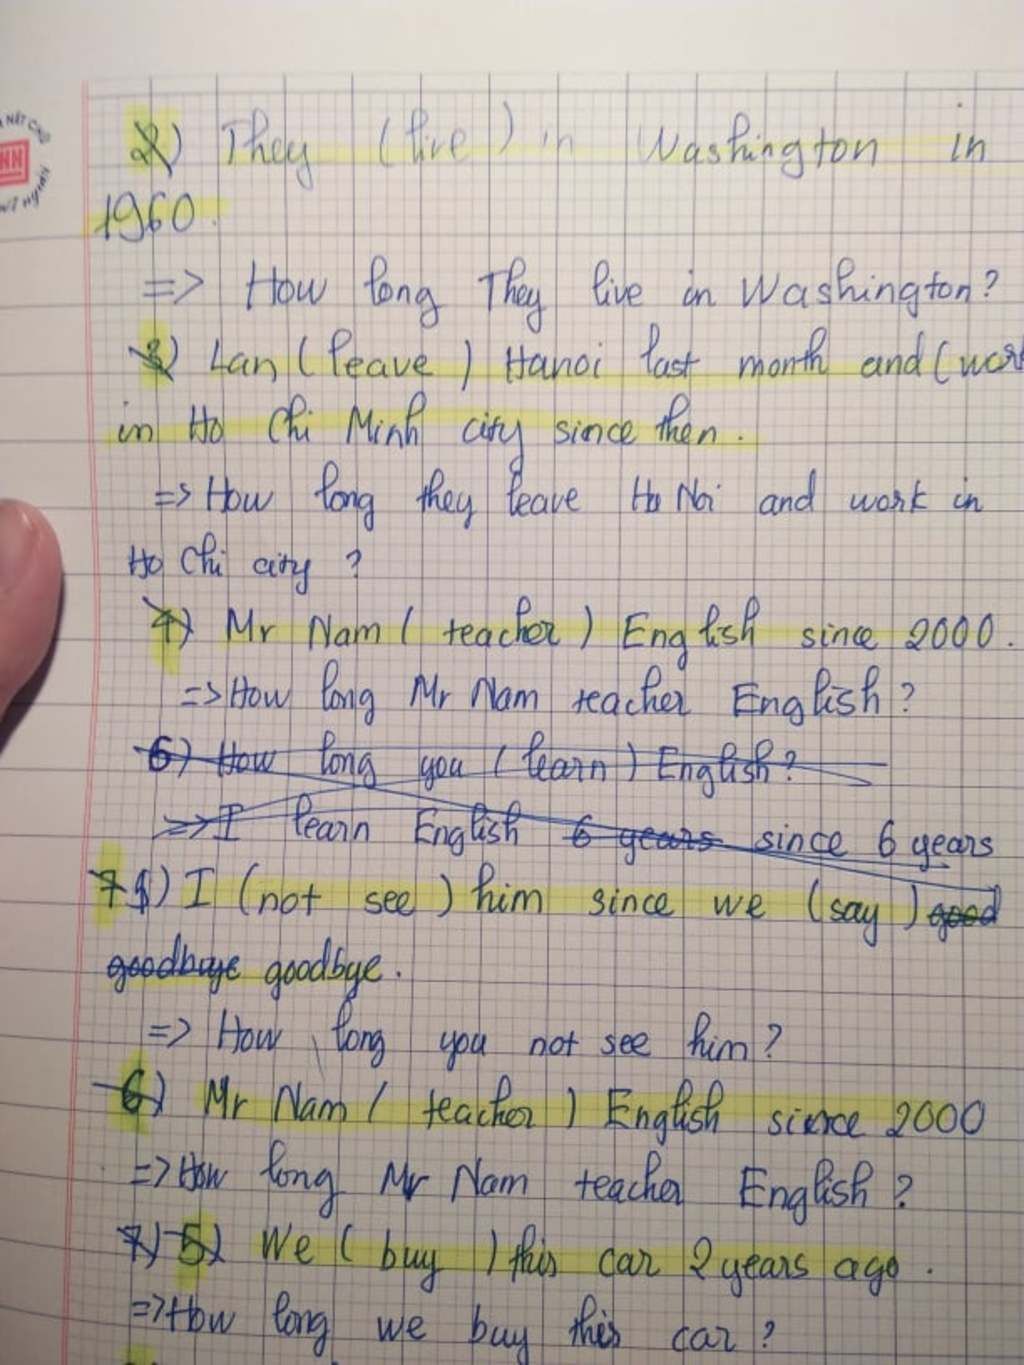 2) They (live) in Washington in
1960.
=> How long They live in Washington?
3) Lan (leave) Hanoi last month and (work
in Ho Chi Minh city since then.
=> How long they leave Ha Noi and work in
Ho Chi city ?
4) Mr Nam ( teacher ) English since 2000.
=> How long Mr Nam teacher English?
6) How long you ( learn ) English?
=> I learn English 6 years since 6 years
7 5) I (not see ) him since we (say ) good
goodbuye goodbye.
=> How long you not see him?
6) Mr Nam ( teacher ) English since 2000
=> How long Mr Nam teacher English ?
7) 5) We ( buy ) this car 2 years ago .
=> How long we buy this car ?